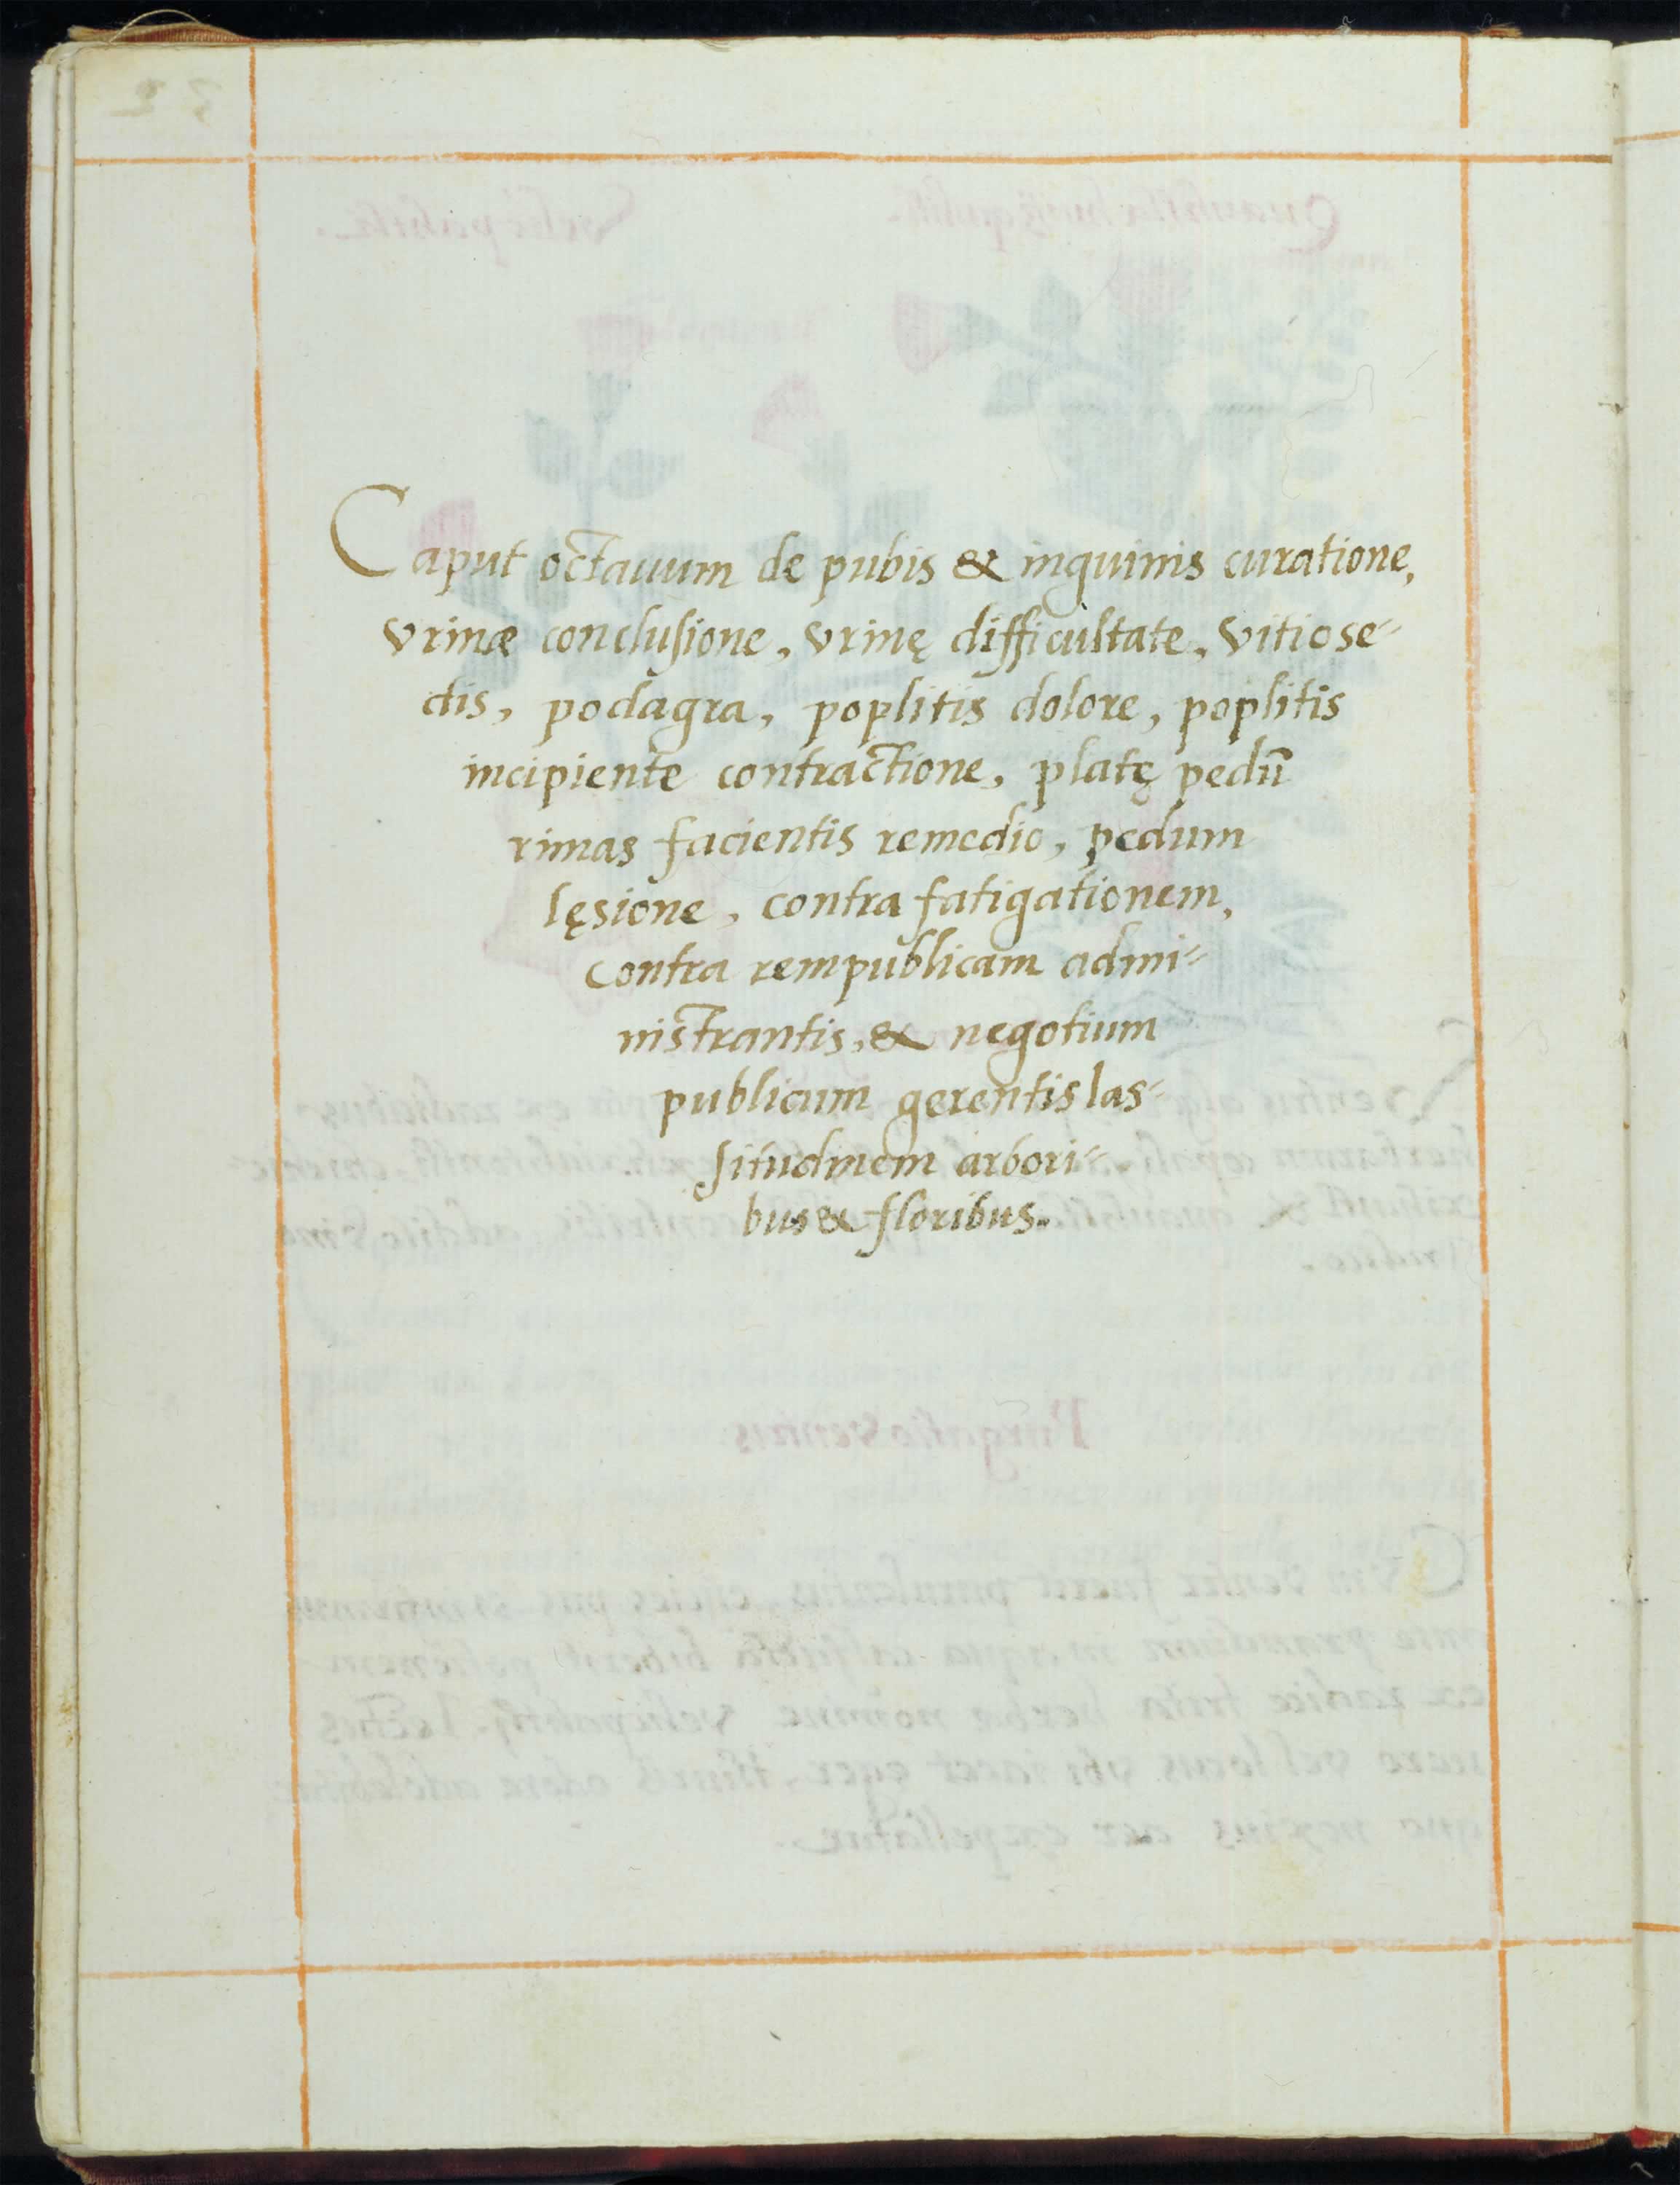 Caput octauum de pubis & inguinis curatione,
vrinæ conclusione, vrinę difficultate, vitio se=
dis, podagra, poplitis dolore, poplitis
incipiente contractione, platę pedū
rimas facientis remedio, pedum
lęsione, contra fatigationem,
contra rempublicam admi=
nistrantis, & negotium
publicum gerentis las=
situdinem arbori=
bus & floribus.